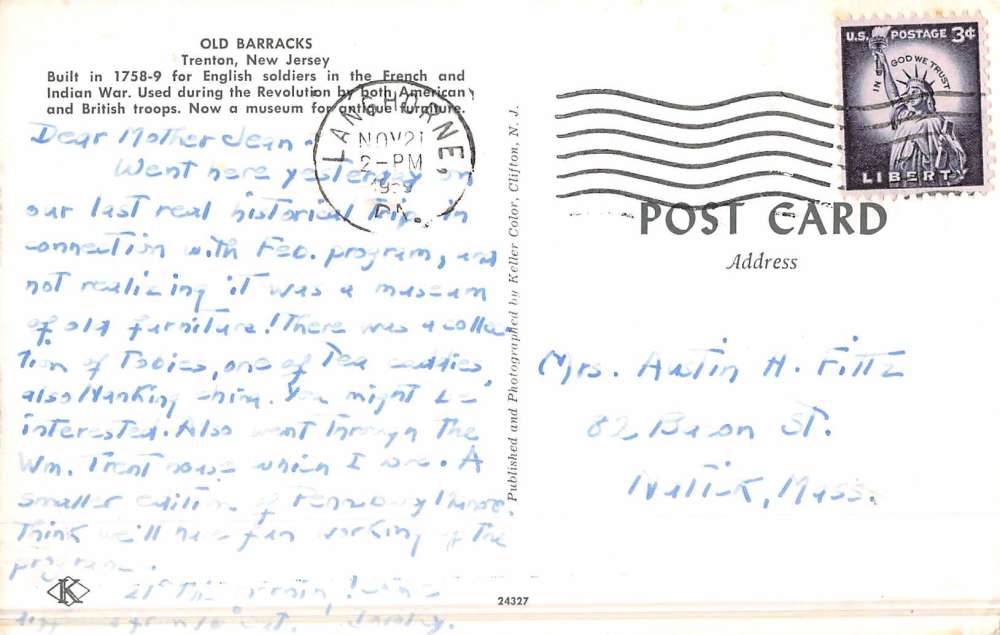 OLD BARRACKS
Trenton, New Jersey
Built in 1758-9 for English soldiers in the French and
Indian War. Used during the Revolution by both American
and British troops. Now a museum for antique furniture.
Dear Mother Jean -
Went here yesterday on
our last real historical trip in
connection with Feb. program, and
not realizing it was a museum
of old furniture! There was a collec-
tion of Tobies, one of Tea caddies,
also Nanking china. You might be
interested. Also went through the
Wm. Trent house which I love. A
smaller edition of
Think we'll have fun working up the
program.
21° this
LANGHORNE,
NOV 21
2-PM
PA.
Published and Photographed by Keller Color, Clifton, N. J.
U.S. POSTAGE 3¢
IN GOD WE TRUST
LIBERTY
POST CARD
Address
Mrs. Austin H. Fittz
St.
Natick, Mass.
K
24327